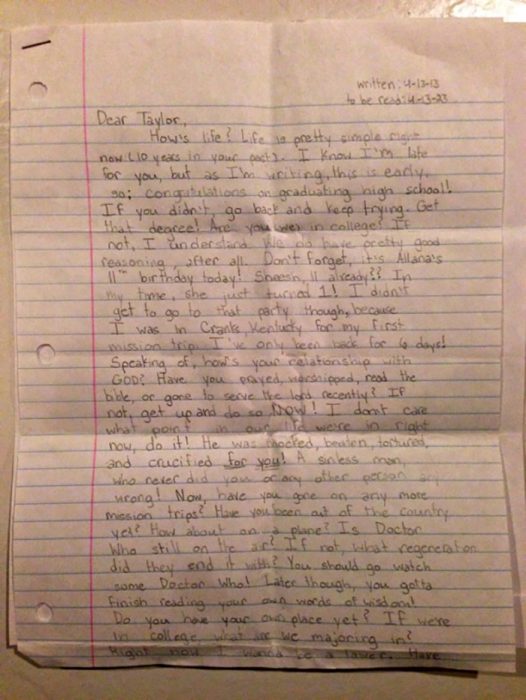 written: 4-13-13
to be read: 4-13-23
Dear Taylor,
How's life? Life is pretty simple right
now (10 years in your past). I know I'm late
for you, but as I'm writing, this is early,
so; congratulations on graduating high school!
If you didn't, go back and keep trying. Get
that degree! Are you/we in college? If
not, I understand. We do have pretty good
reasoning, after all. Don't forget, it's Allana's
11th birthday today! Sheesh, 11 already?! In
my time, she just turned 1! I didn't
get to go to that party though, because
I was in Cranks, Kentucky for my first
mission trip. I've only been back for 6 days!
Speaking of, how's your relationship with
GOD? Have you prayed, worshipped, read the
bible, or gone to serve the lord recently? If
not, get up and do so NOW! I don't care
what point in our life we're in right
now, do it! He was mocked, beaten, tortured,
and crucified for you! A sinless man,
who never did you or any other person any
wrong! Now, have you gone on any more
mission trips? Have you been out of the country
yet? How about on a plane? Is Doctor
Who still on the air? If not, what regeneration
did they end it with? You should go watch
some Doctor Who! Later though, you gotta
finish reading your own words of wisdom!
Do you have your own place yet? If we're
in college, what are we majoring in?
Right now I wanna be a lawer. Have